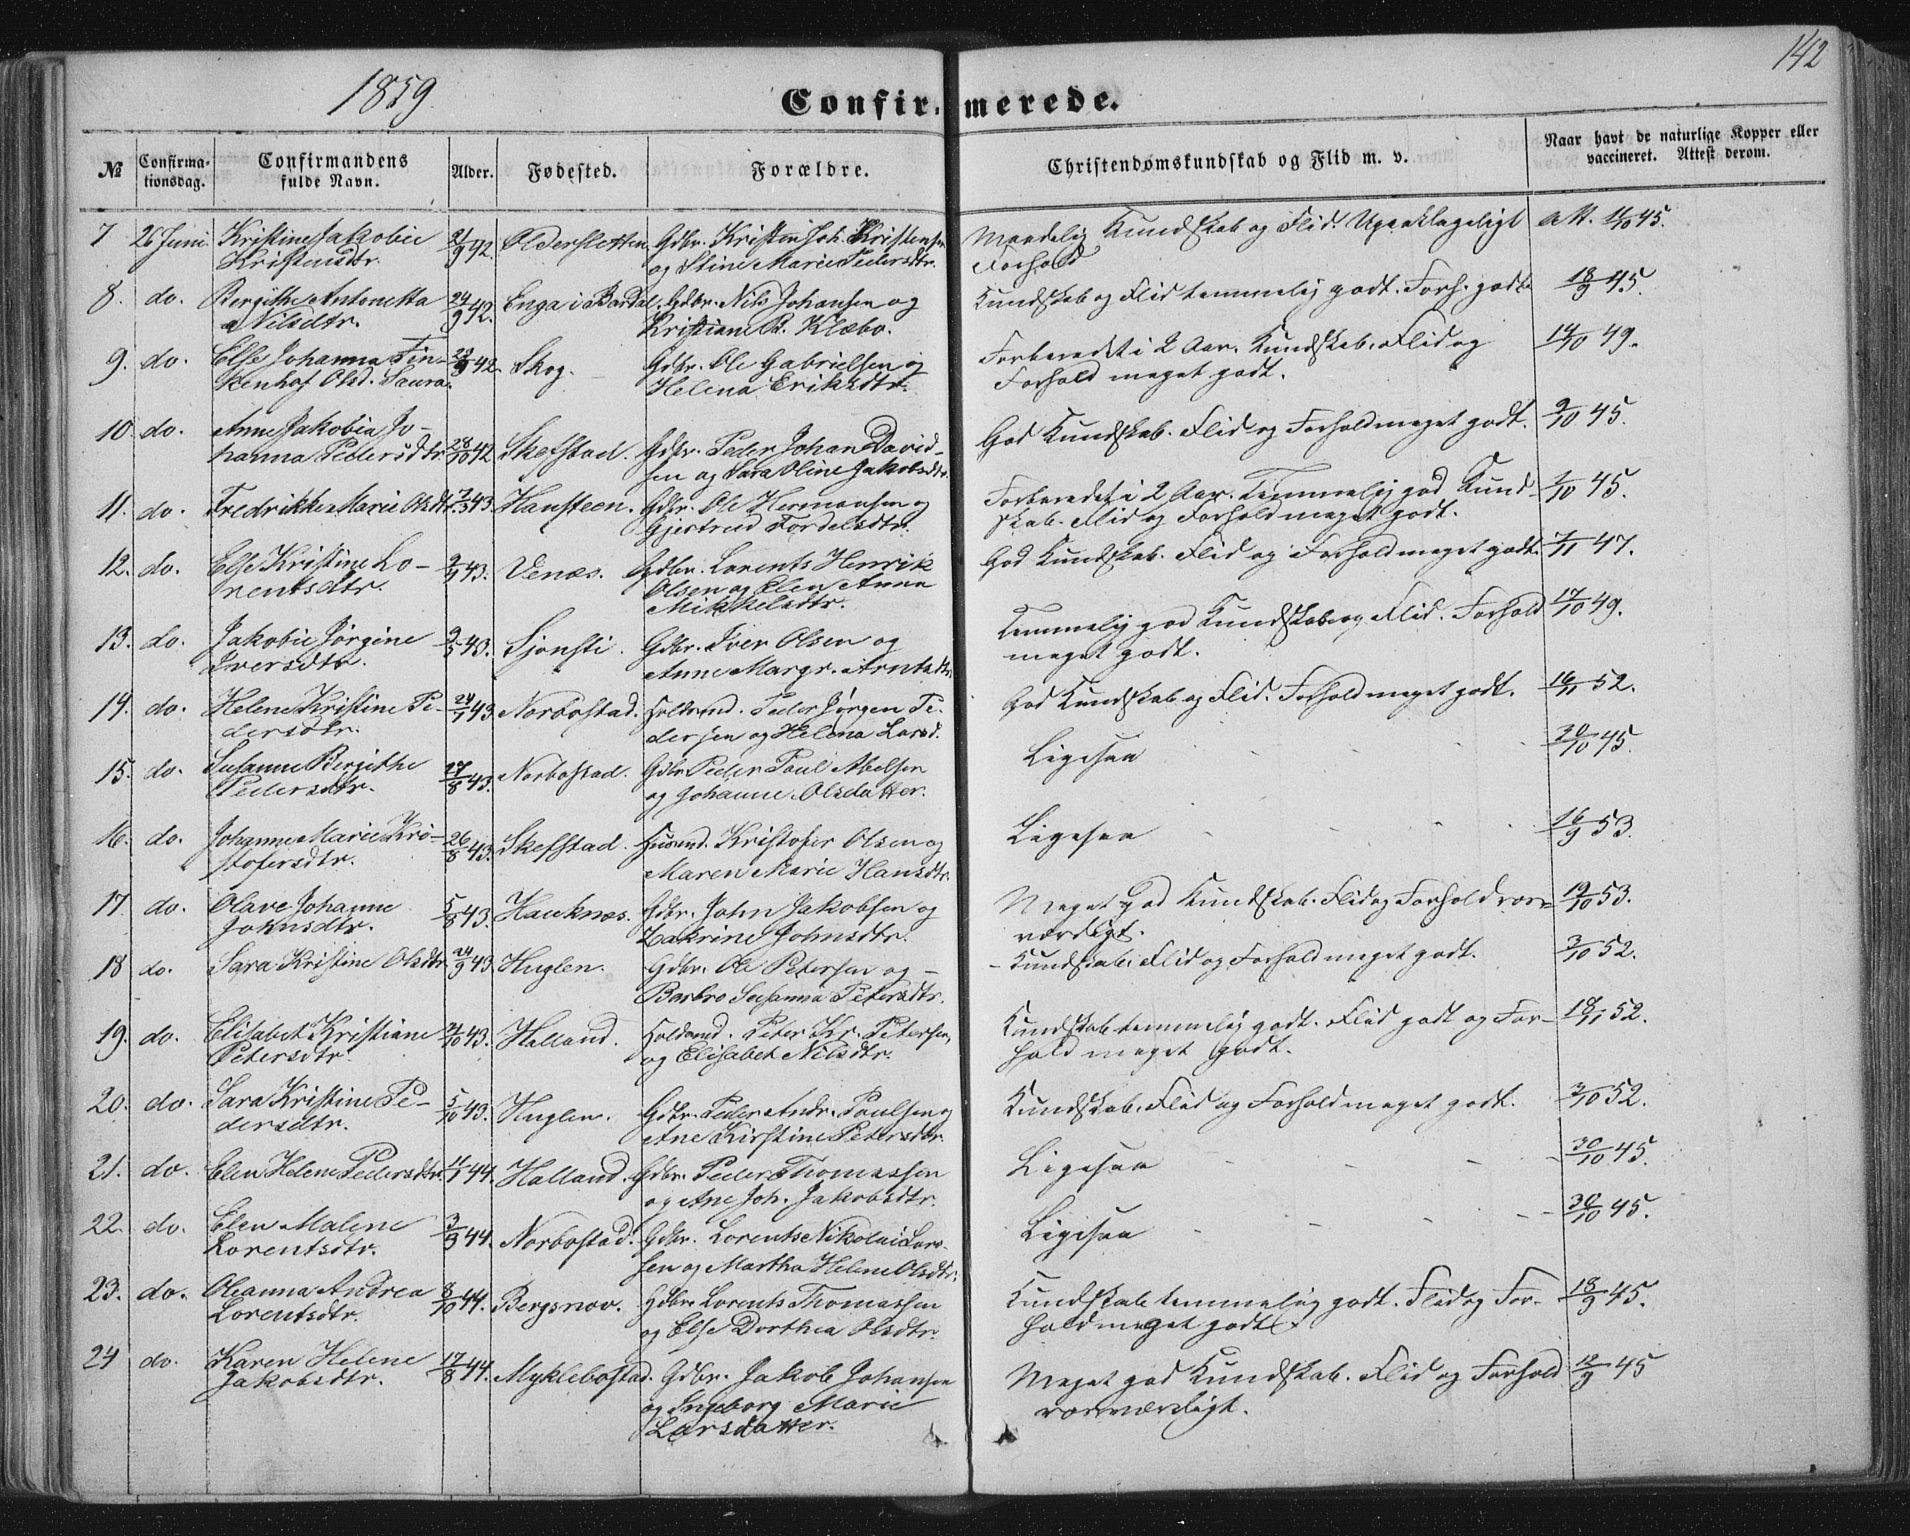 1859
142
Confirmerede.
№ Confirma-tionsdag. Confirmandens fulde Navn. Alder. Fødested. Forældre. Christendomskundskab og Flid m. v. Naar havt de naturlige Kopper eller vaccineret. Attest derom.
7 26 Juni Kristine Jakobie 21/9 42. Olderskletten Gdbr. Kristen Joh. Kristensen Maadelig Kundskab og Flid. Upaaklageligt att. 45.
Kristensdtr. og Stine Marie Pedersdtr. Forhold
8. do. Bergithe Antonetta 24/9 42. Enga i Bardal. Gdbr. Nils Johansen og Kundskab og Flid temmelig godt. Forh. godt. 18/9 45.
Nilsdtr. Kristiane B. Klæbo.
9. do. Else Johanna Fin- 42. Skog. Gdbr. Ole Gabrielsen og Forberedet i 2 Aar. Kundskab. Flid og 14/10 49.
Olsd. Saura. Helena Eriksdtr. Forhold meget godt.
10 do. Anne Jakobia Jo- God Kundskab. Flid og Forhold meget godt. 9/10 45.
hanna Pedersdtr 28/10 42 Skefstad. Gdbr. Peder Johan David-
sen og Sara Oline Jakobsdtr.
11. do. Fredrikke Marie Olsdtr. 43. Hansteen. Gdbr. Ole Hermansen og Forberedet i 2 Aar. Temmelig god Kund- 45.
Gjertrud Tordelsdtr. skab. Flid og Forhold meget godt.
12. do. Else Kristine Lo- 43. Venæs. Gdbr. Lorents Henrik God Kundskab. Flid og Forhold meget godt. 7/11 47.
rentsdtr. Olsen og Elen Anna
Mikkelsdtr.
13. do. Jakobie Jørgine 9/5 43. Sjonsti. Gdbr. Iver Olsen og Temmelig god Kundskab og Flid. Forhold 17/10 49.
Iversdtr. Anne Margr. Arntsdtr. meget godt.
14. do. Helene Kristine Pe- 24/7 43. Norbostad. Peder Jørgen Pe- God Kundskab og Flid. Forhold meget godt. 16/11 52.
dersdtr. dersen og Helena Larsd.
15. do. Susanne Bergithe 27/8 43. Norbostad. Gdbr Peder Paul Abelsen Ligesaa 30/10 45.
Pedersdtr. og Johanne Olsdatter.
16. do. Johanne Marie Kri- 26/8 43. Skefstad. Husmd. Kristofer Olsen og Ligesaa 26/9 53.
stofersdtr. Maren Marie Hansdtr.
17 do. Olave Johanne 5/8 43. Hauknæs. Gdbr. John Jakobsen og Meget god Kundskab. Flid og Forhold ros- 19/10 53.
Johnsdtr. Zakrine Johnsdtr. værdigt.
18 do. Sara Kristine Olsdtr 24/9 43. Huglen. Gdbr. Ole Petersen og - Kundskab. Flid og Forhold meget godt. 3/10 52.
Barbro Susanna Petersdtr.
19. do. Elisabet Kristiane 43. Halland. Peter Kr. Petersen, Kundskab temmelig godt. Flid godt og For- 18/11 52.
Petersdtr. og Elisabet Nilsdtr. hold meget godt.
20. do. Sara Kristine Pe- 5/10 43. Huglen. Gdbr. Peder Andr. Paulsen og Kundskab. Flid og Forhold meget godt. 3/10 52.
dersdtr. Ane Kirstine Petersdtr.
21. do Elen Helene Pedersdtr. 44. Halland. Gdbr. Peder Thomassen Ligesaa 30/10 45.
og Ane Joh. Jakobsdtr.
22. do. Elen Malene 3/9 44. Norbostad. Gdbr. Lorents Nikolai Lars- Ligesaa 30/10 45.
Lorentsdtr. sen og Martha Helene Olsdtr.
23. do. Oleanna Andrea 8/10 44. Bergsnov. Gdbr Lorents Thomassen Kundskab temmelig godt. Flid og For- 18/9 45.
Lorentsdtr. og Else Dorthea Olsdtr. hold meget godt.
24 do. Karen Helene 17/8 44. Myklebostad. Gdbr. Jakob Johansen Meget god Kundskab. Flid og Forhold 12/9 45
Jakobsdtr. og Ingeborg Marie rosværdigt.
Larsdatter.